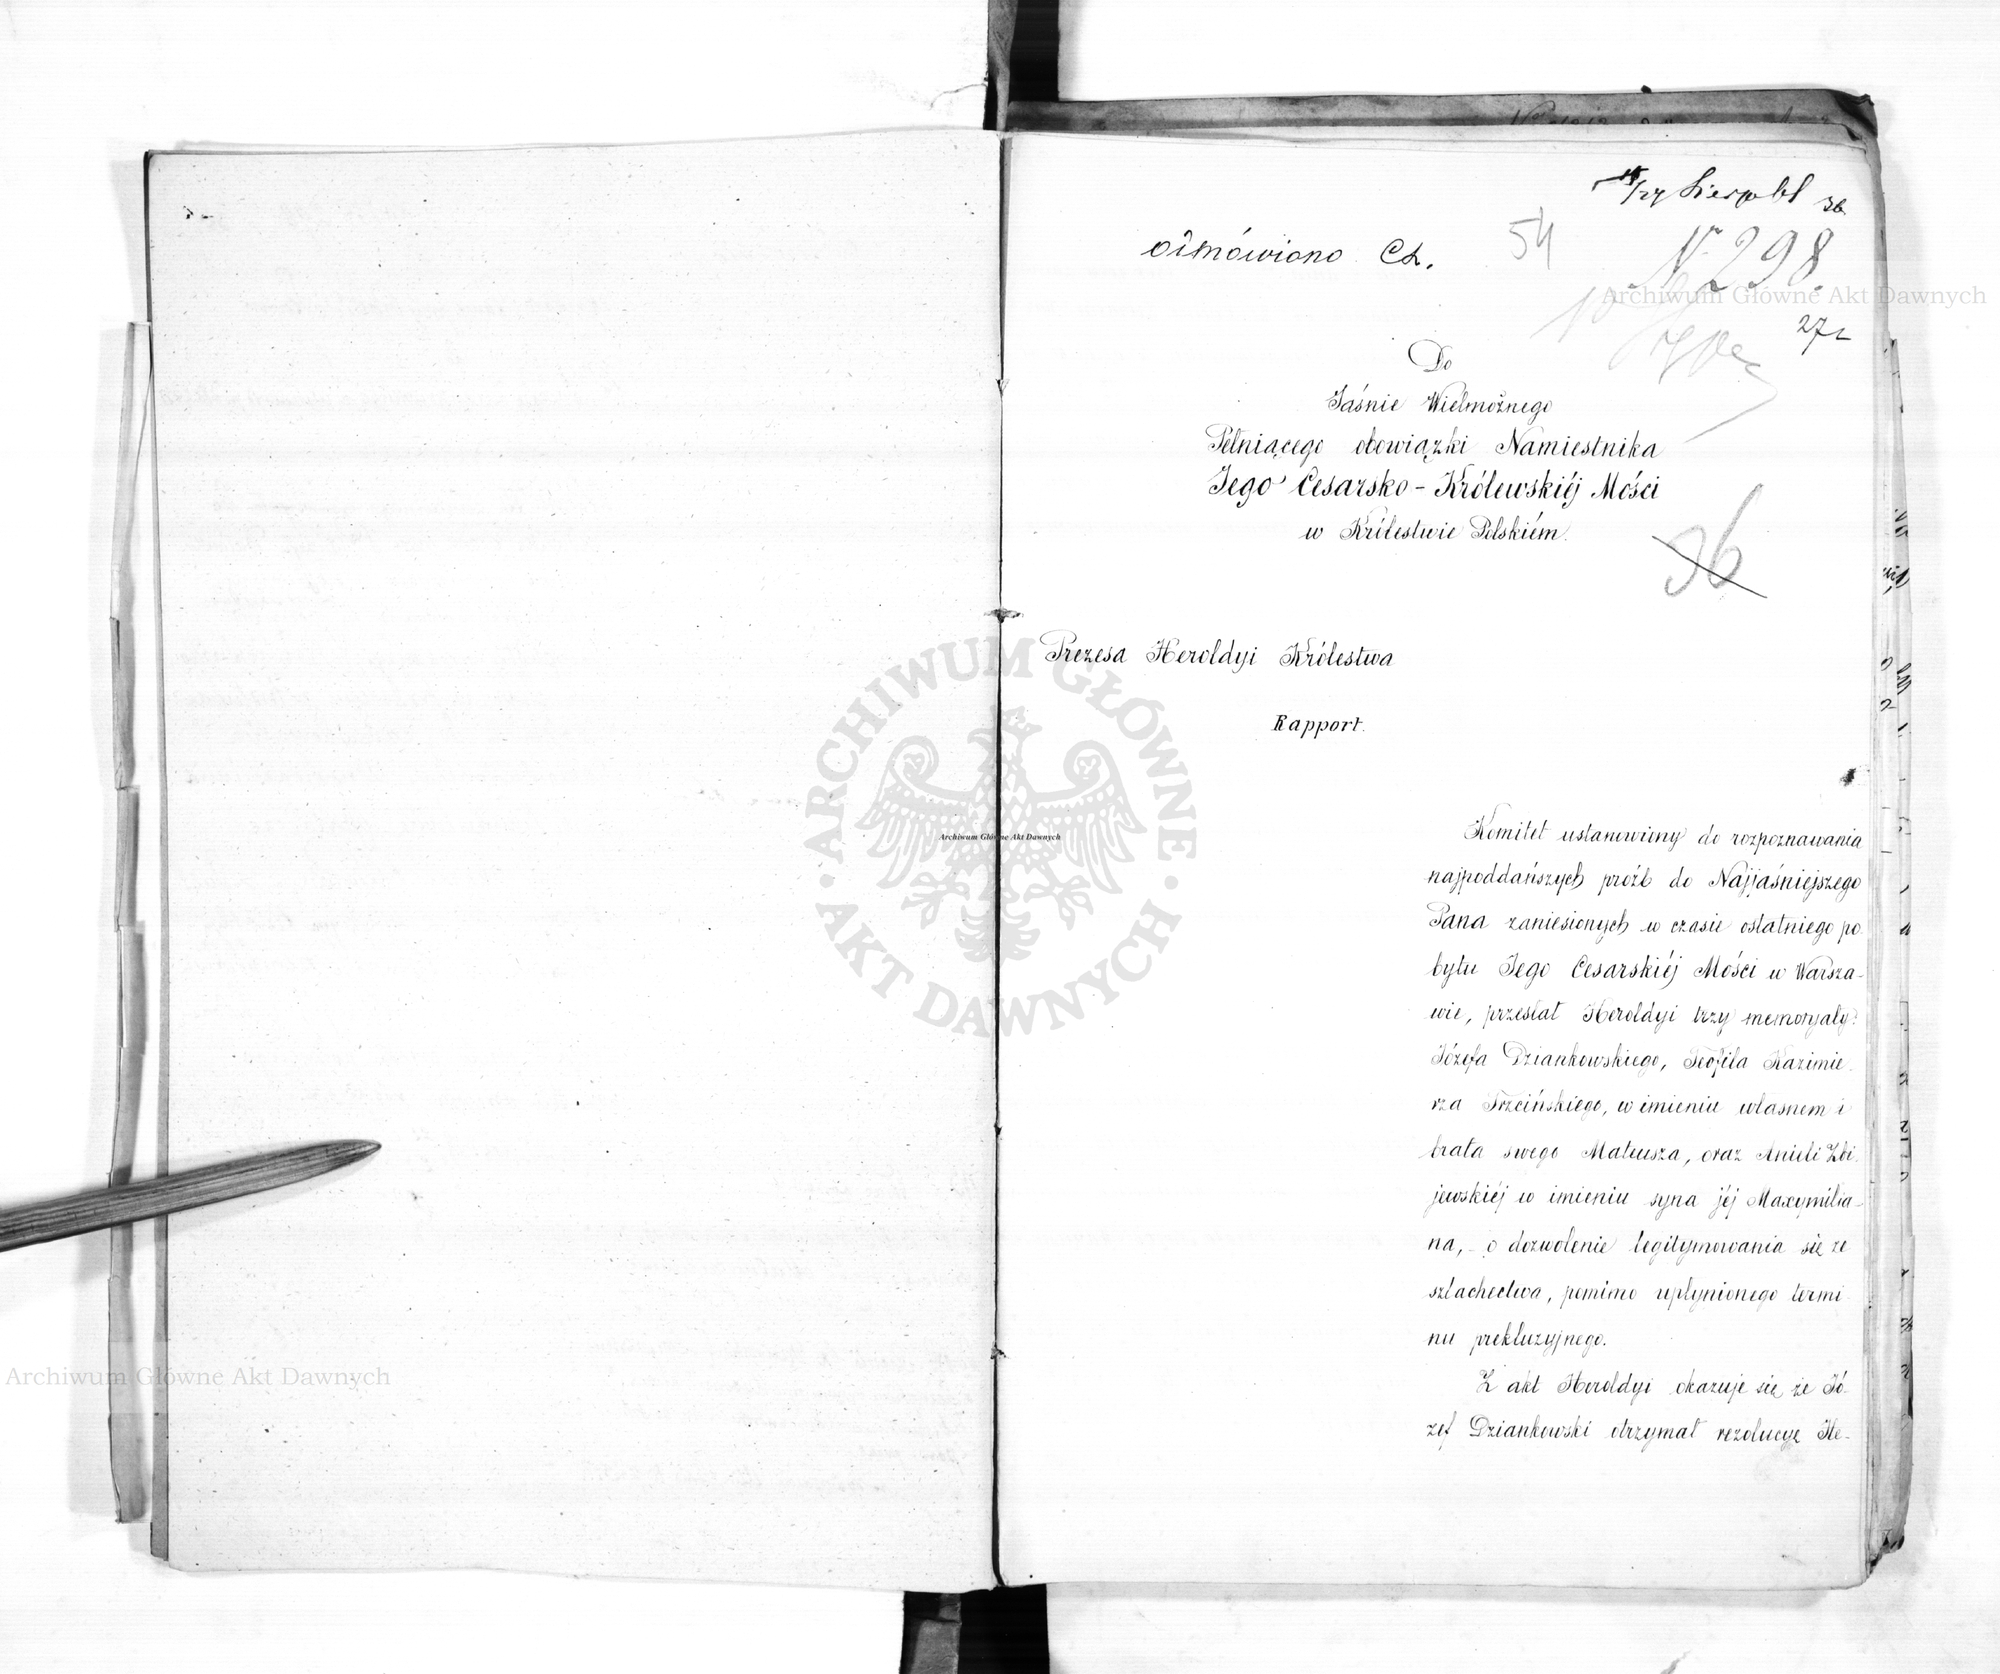 /27 Sierpnia
odmówiono
54
Nr 298.
272
Do
Jaśnie Wielmożnego
Pełniącego obowiązki Namiestnika
Jego Cesarsko-Królewskiéj Mości
w Królestwie Polskiém.
36
Prezesa Heroldyi Królestwa
Rapport.
Komitet ustanowiony do rozpoznawania
najpoddańszych próźb do Najjaśniejszego
Pana zaniesionych w czasie ostatniego po
bytu Jego Cesarskiéj Mości w Warsza-
wie, przesłał Heroldyi trzy memoryały:
Józefa Dziankowskiego, Teofila Kazimie
rza Trzcińskiego, w imieniu własnem i
brata swego Mateusza, oraz Anieli Zbi
jewskiéj w imieniu syna jéj Maxymilia-
na, - o dozwolenie legitymowania się ze
szlachectwa, pomimo upłynionego termi
nu prekluzyjnego.
Z akt Heroldyi okazuje się że Jó-
zef Dziankowski otrzymał rezolucyę He-
ARCHIWUM GŁÓWNE AKT DAWNYCH
Archiwum Główne Akt Dawnych
Archiwum Główne Akt Dawnych
Archiwum Główne Akt Dawnych